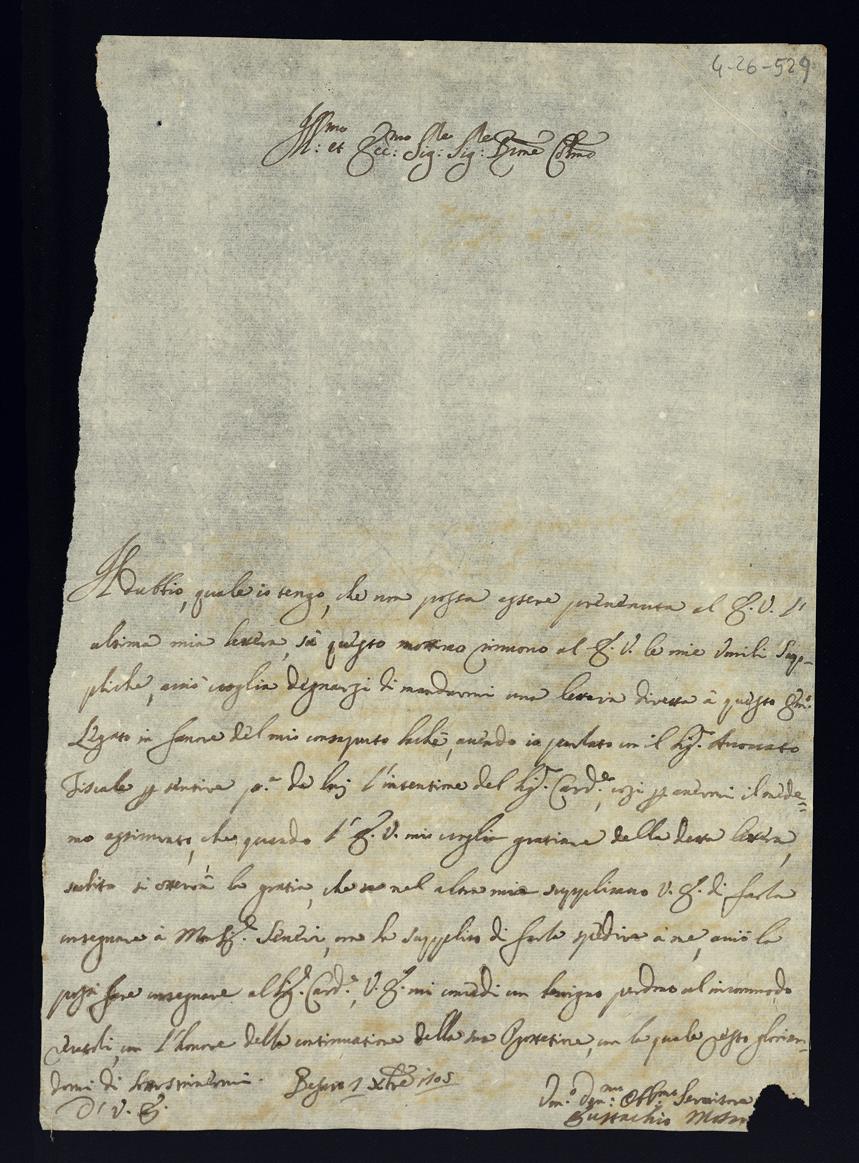 4-26-529
Ill:mo et Ecc:mo Sig:re Sig:re Prone Colmo
Il dubbio, quale io tengo, che non possa essere prevenuta al E. V. l'
altima mia lettera, fà questo motivo rinnovo al E. V. le mie umili Supp-
pliche, acciò voglia degnarsi di mandarmi una lettera diretta à questo Emo
Legato in favore del mio consaputo, avendo io parlato con il Sig.r Avvocato
Fiscale p sentire p.a da luj l'intentione del Sig.r Card.le, e p avermi il mede=
mo assicurato, che quando l'E. V. mi voglia gratiare della detta lettera,
subito si otterrà la gratia, che se nel altra mia supplicavo V. E. di farla
consegnare à Monsig.r, ora la supplico di farla spedire à me, acciò la
possi fare consegnare al Sig.r Card.le, V. E. mi concedi un benigno perdono al incommodo
, con l'honore della continuatione della sua Protettione, con la quale resto glorian-
domi di sottoscrivermi. Pesaro 1 Xbre 1705
D' V. E.
Um.o Dev:mo Obb:mo Servitore
Eustachio